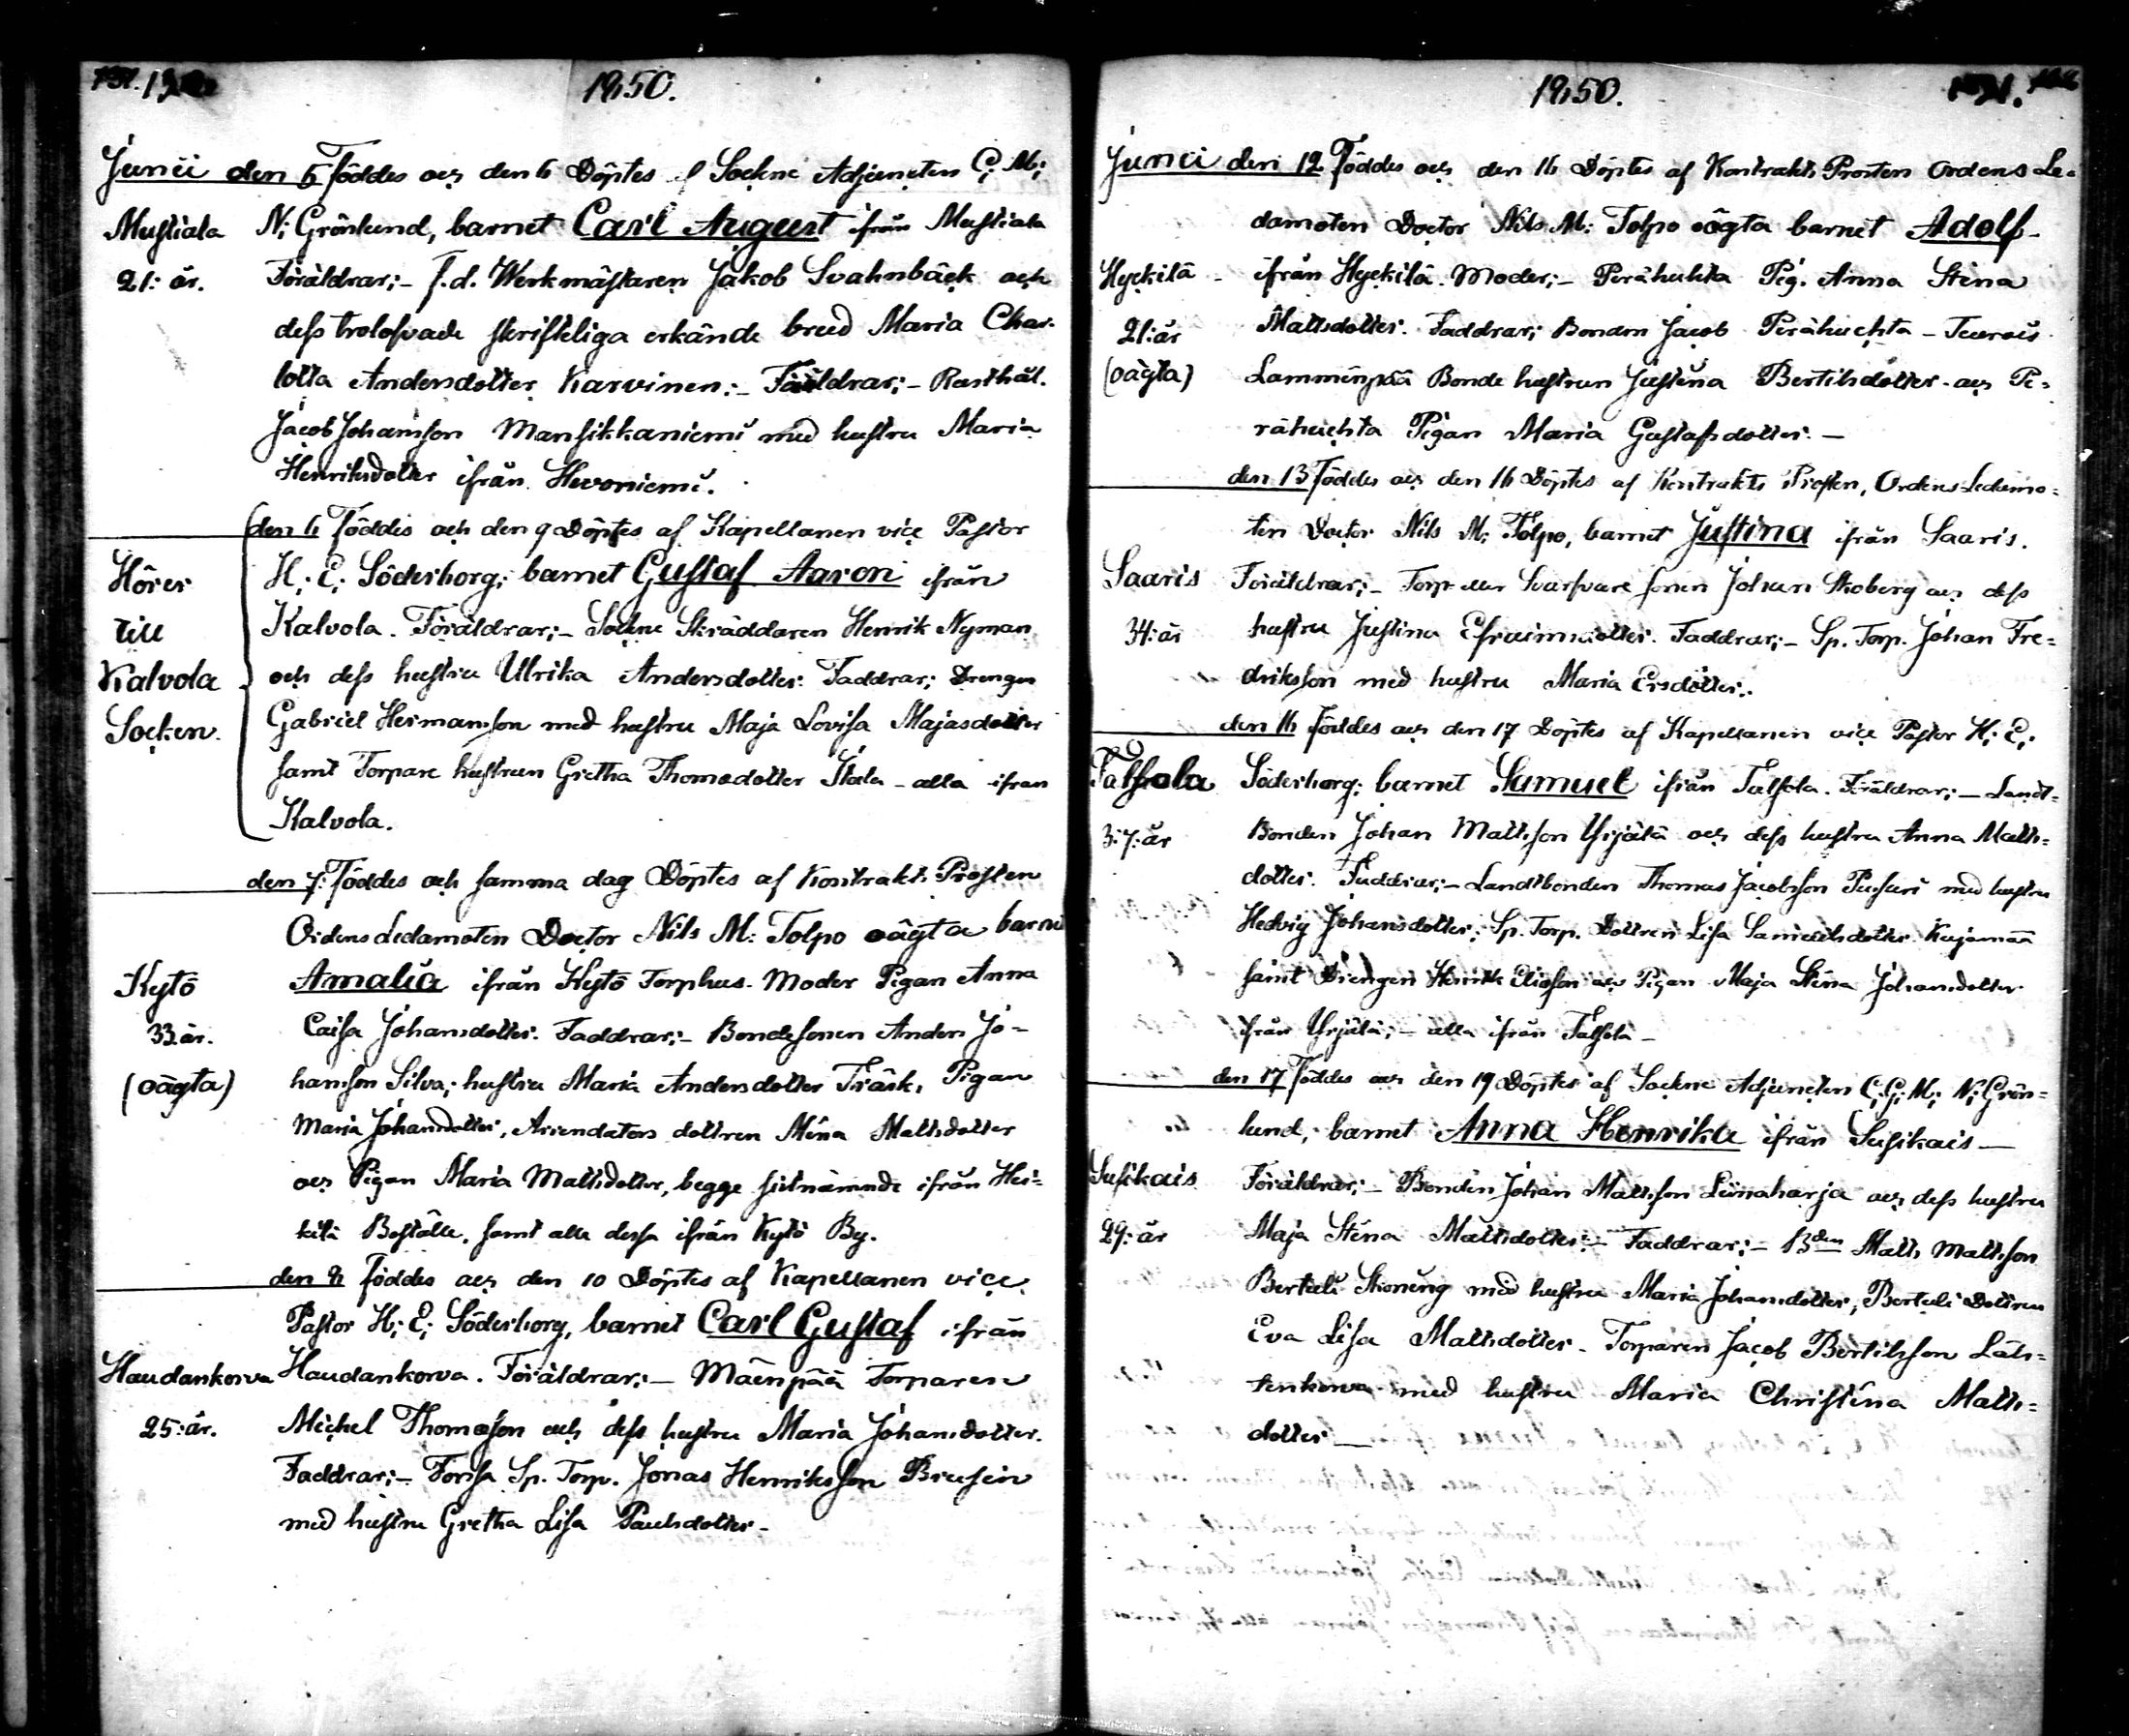 1850.
Junii den 5 Föddes och den 6 Döptes af Sockne Adjuncten C; M;
Mustiala N; Grönlund, barnet Carl August ifrån Mustiala
21: år. Föräldrar;- f.d. Werkmästaren Jakob Svahnbäck och
dess trolofvade skrifteliga erkände brud Maria Char-
lotta Andersdotter Karvinen:- Faddrar;- Rusthål.
Jacob Johansson Mansikkaniemi med hustru Maria
Henriksdotter ifrån Hevoniemi.
den 6 Föddes och den 9 Döptes af Kapellanen vice Pastor
Hörer H; E; Söderborg; barnet Gustaf Aaron ifrån
till Kalvola. Föräldrar;- Sockne Skräddaren Henrik Nyman
Kalvola och dess hustru Ulrika Andersdotter. Faddrar; Drengen
Socken. Gabriel Hermansson med hustru Maja Lovisa Majasdotter
samt Torpare hustrun Gretha Thomasdotter - alla ifran
Kalvola.
den 7: Föddes och samma dag Döptes af Kontrakts Prosten
Ordens Ledamoten Doctor Nils M: Tolpo oägta barnet
Kytö Amalia ifrån Kytö Torphus. Moder Pigan Anna
33 år. Caisa Johansdotter. Faddrar;- Bondesonen Anders Jo-
(oägta) hansson Silva; hustru Maria Andersdotter Träsk, Pigan
Maria Johansdotter, Arrendators dottren Mina Mattsdotter
och Pigan Maria Mattsdotter, begge sistnämnde ifrån Hei=
kilä Boställe, samt alla dessa ifrån Kytö By.
den 8 föddes och den 10 Döptes af Kapellanen vice
Pastor H; E; Söderborg, barnet Carl Gustaf ifrån
Haudankorva Haudankorva. Föräldrar;- Mäenpää Torparen
25: år. Michel Thomasson och dess hustru Maria Johansdotter.
Faddrar;- Forssa Sp. Torp. Jonas Henriksson Brusin
med hustru Gretha Lisa Paulsdotter-
1850.
Junii den 12 Föddes och den 16 Döptes af Kontrakts Prosten Ordens Le=
damoten Doctor Nils M: Tolpo oägta barnet Adolf-
Hyckilä - ifrån Hyckilä. Moder;- Perähuhta Pig. Anna Stina
21: år Mattsdotter. Faddrar; Bondn Jacob Perähuchta -
(oägta) Lamminpää Bonde hustrun Justina Bertilsdotter och Pe=
rähuchta Pigan Maria Gustafsdotter. -
den 13 Föddes och den 16 Döptes af Kontrakts Prosten, Ordens Ledamo=
ten Doctor Nils M; Tolpo, barnet Justina ifrån Saaris.
Saaris Föräldrar;- Torp- Svarfvare sonen Johan Skoberg och dess
34: år hustru Justina Efraimsdotter. Faddrar;- Sp. Torp. Johan Fre=
driksson med hustru Maria Ersdotter.
den 16 föddes och den 17 Döptes af Kapellanen vice Pastor H; E;
Talsola Söderborg; barnet Samuel ifrån Talsola. Föräldrar;- Landt=
37: år Bonden Johan Mattsson Yrjätä och dess hustru Anna Matts=
dotter. Faddrar;- Landtbonden Thomas Jacobsson Pusuri med hustru
Hedvig Johansdotter; Sp. Torp. Dottren Lisa Samuelsdotter Kujamää
samt Drengen Henrik Eliasson och Pigan Maja Stina Johansdotter
ifrån Yrjätä;- alla ifrån Talsola -
den 17 föddes och den 19 Döptes af Sockne Adjuncten C; G; M; N; Grön=
lund, barnet Anna Henrika ifrån Susikais -
Susikais Föräldrar;- Bonden Johan Mattsson Liinaharja och dess hustru
29: år Maja Stina Mattsdotter;- Faddrar;- Bden Matts Mattsson
Bertuli Skoneng med hustru Maria Johansdotter; Bertuli Dottren
Eva Lisa Mattsdotter - Torparen Jacob Bertilsson Läh=
tenkorva med hustru Maria Christina Matts=
dotter -